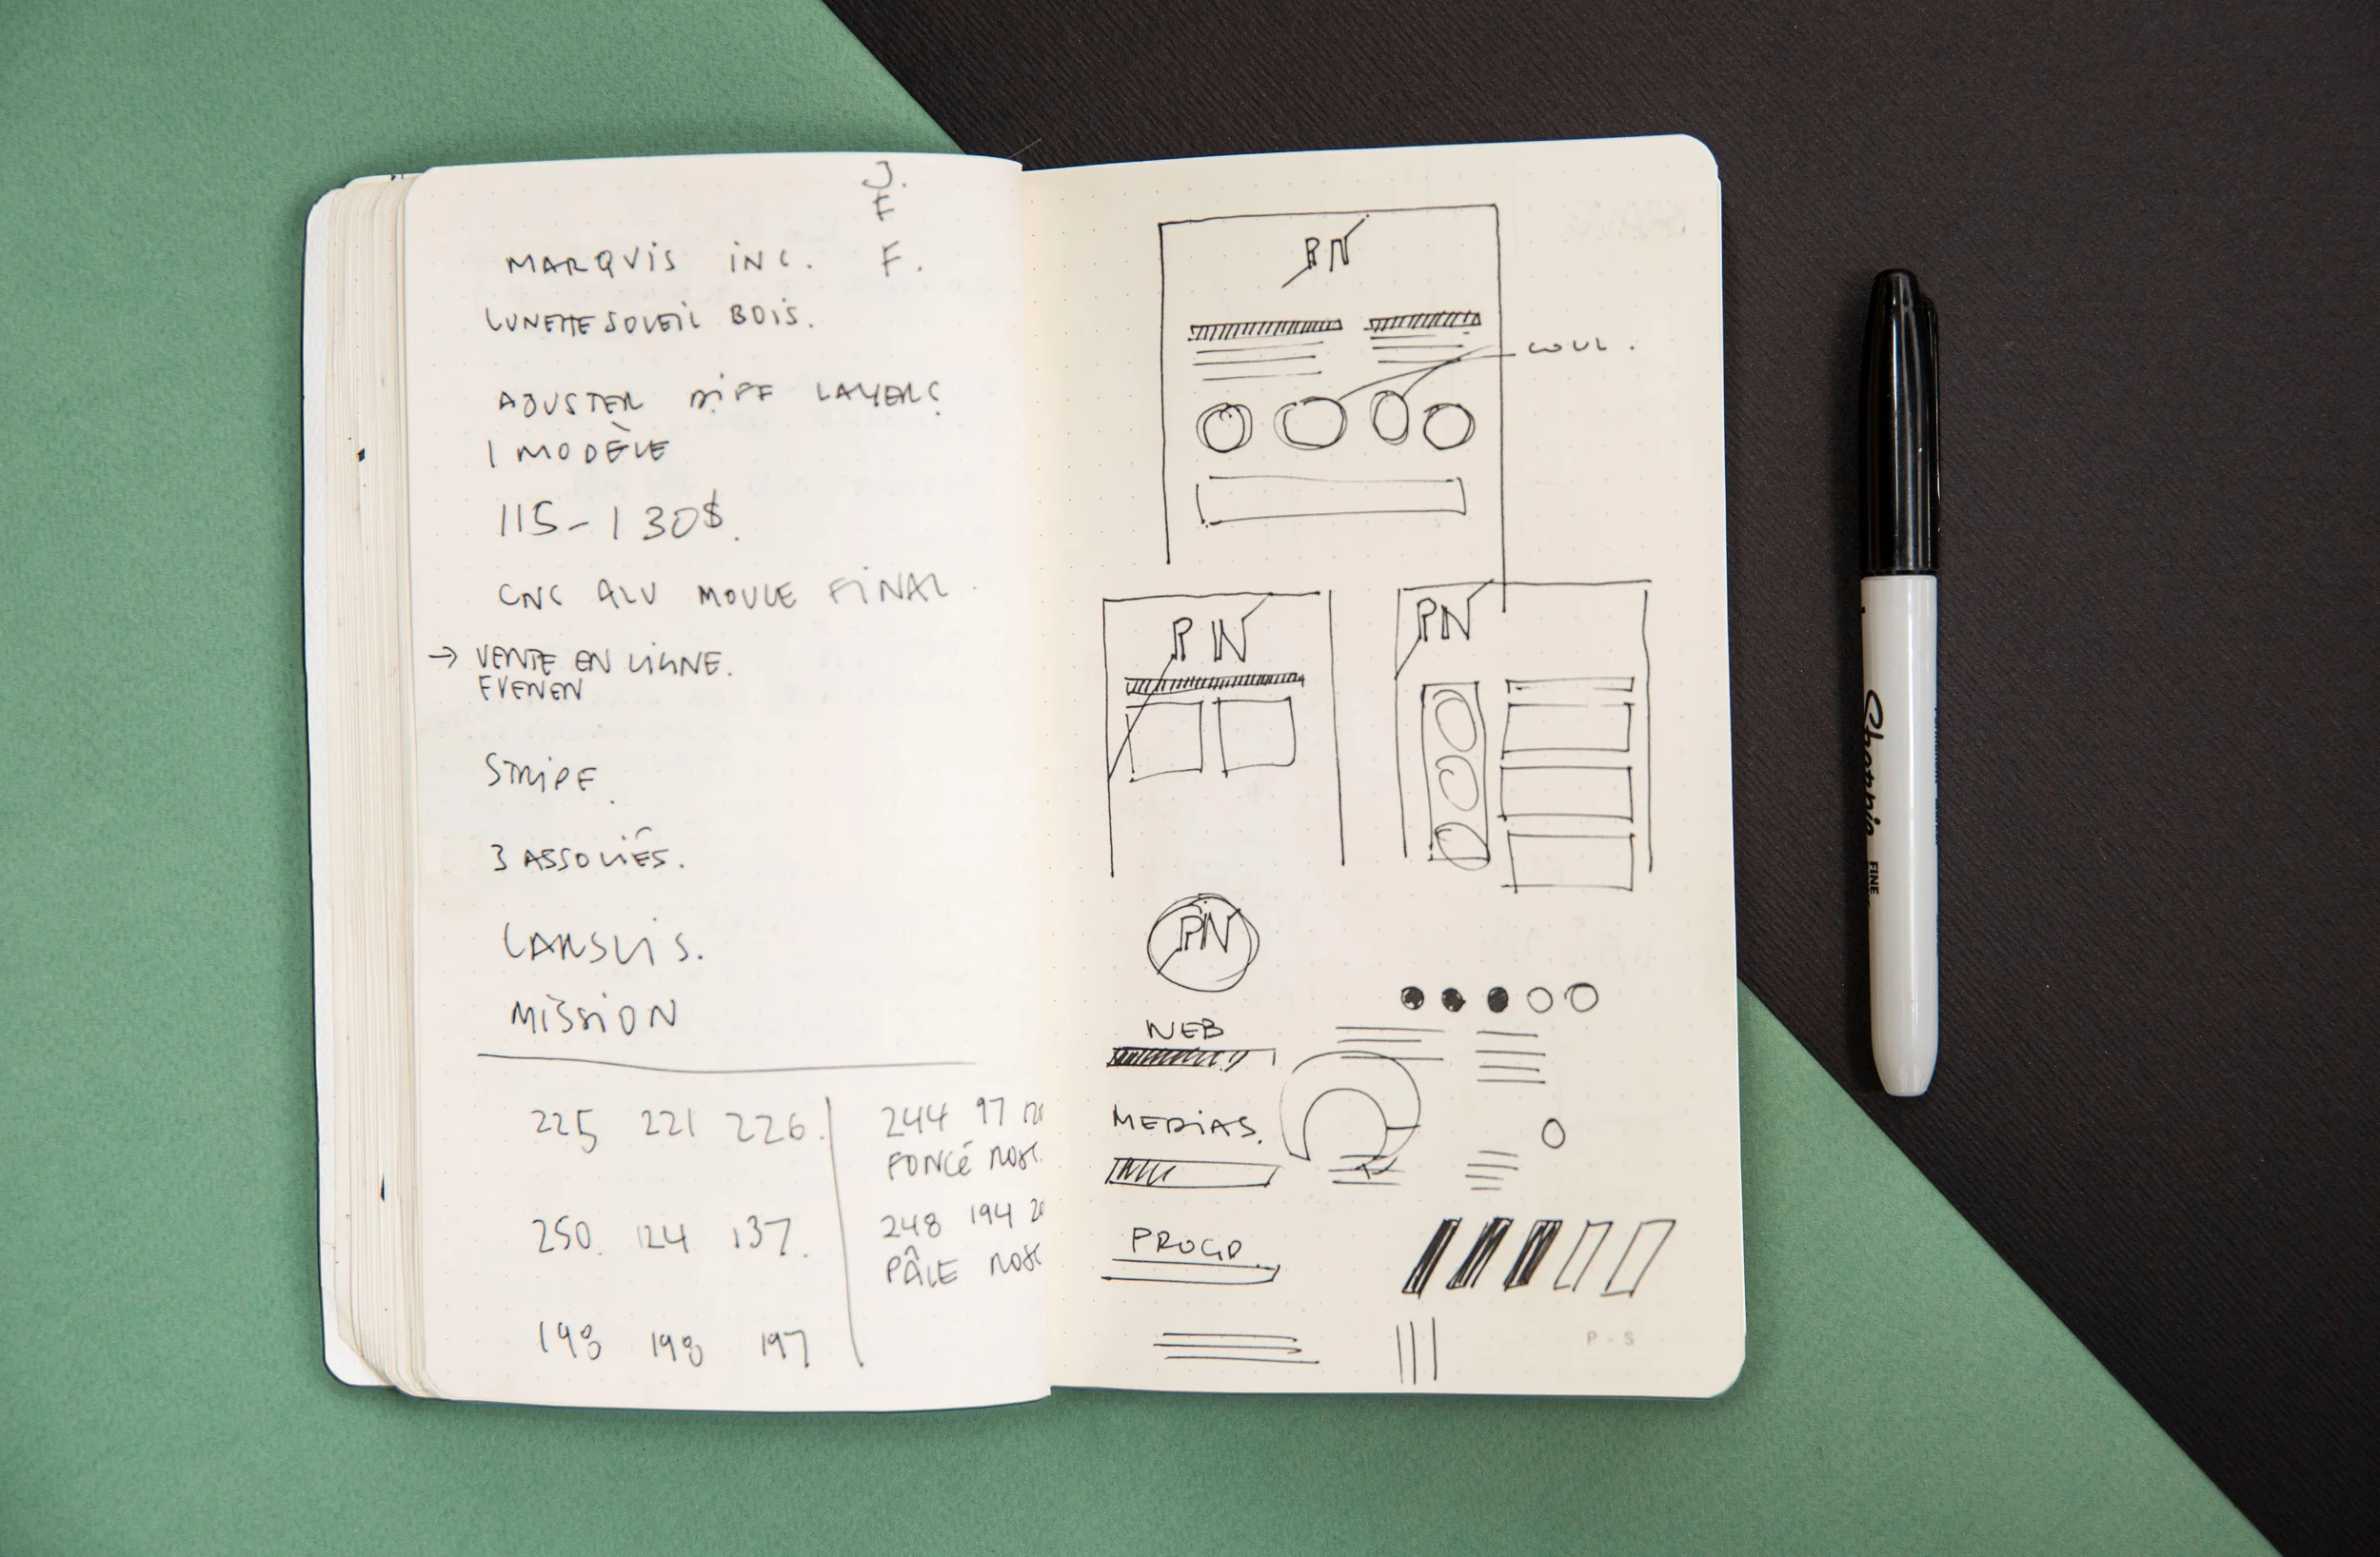 J.
F
MARQUIS INC. F.
LUNETTE SOLEIL BOIS.
AJUSTER DIFF LAYERS
1 MODÈLE
115-130$.
CNC ALU MOULE FINAL.
→ VENTE EN LIGNE.
EVENEN
STRIPE.
3 ASSOCIÉS.
MISSION
225 221 226.
250. 124 137.
198 198 197
244 97
FONCÉ
248 194
PÂLE
PN
COUL.
PN
PN
PN
WEB
MEDIAS.
PROGR.
P.S
Sharpie
FINE